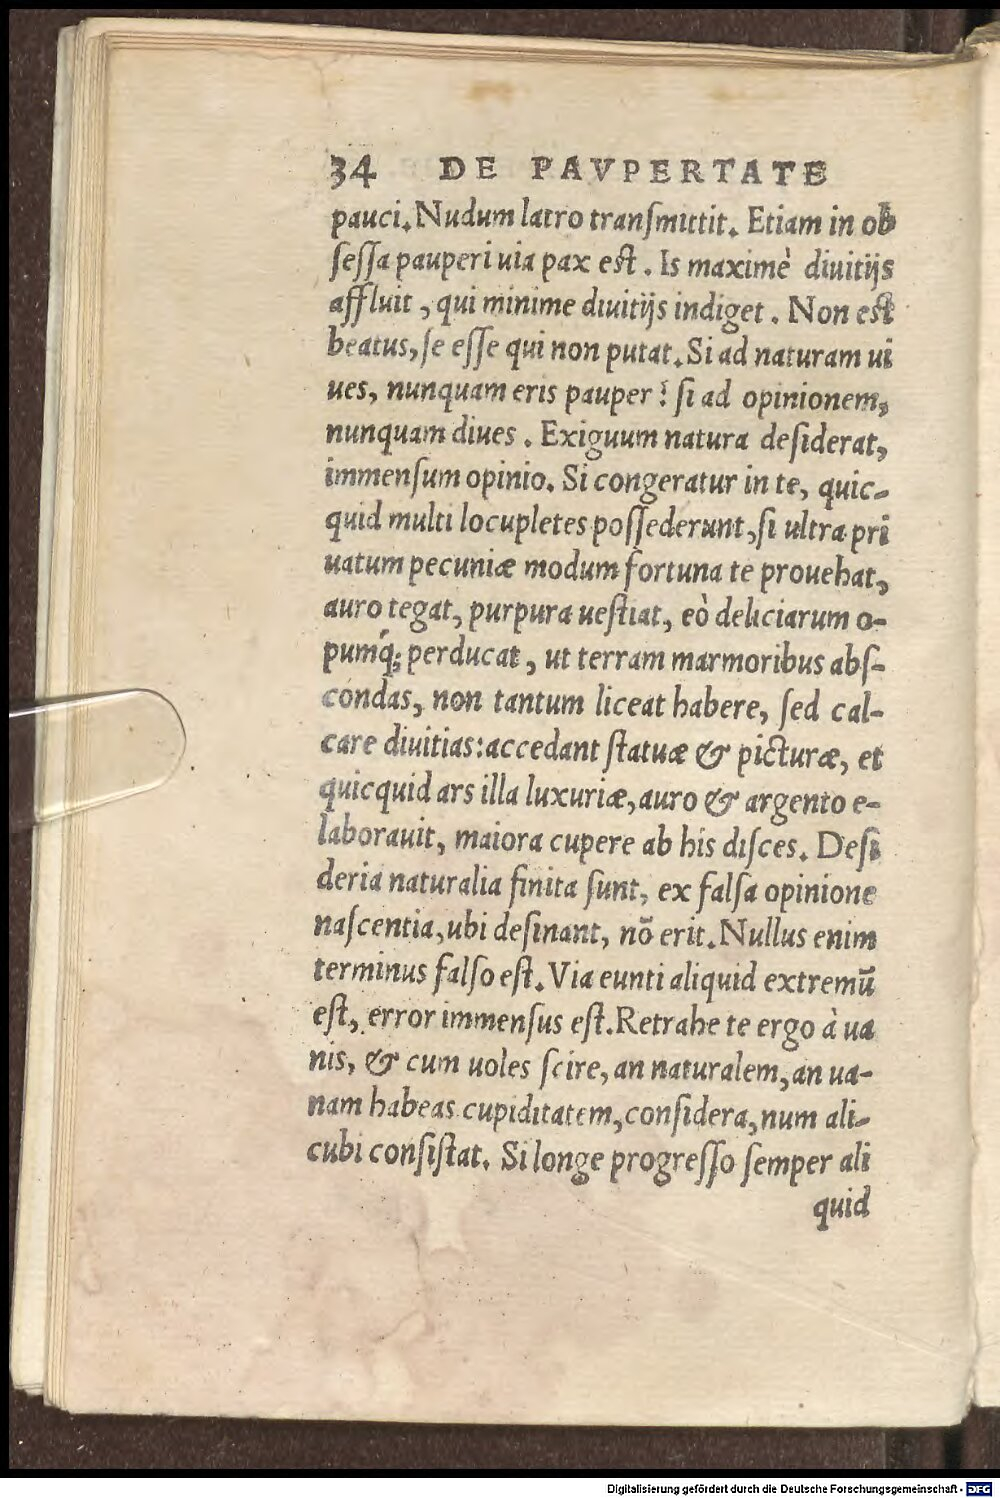 34 DE PAVPERTATE
pauci. Nudum latro transmittit. Etiam in ob
sessa pauperi uia pax est. Is maximè diuitijs
affluit, qui minime diuitijs indiget. Non est
beatus, se esse qui non putat. Si ad naturam ui
ues, nunquam eris pauper: si ad opinionem,
nunquam diues. Exiguum natura desiderat,
immensum opinio. Si congeratur in te, quic-
quid multi locupletes possederunt, si ultra pri
uatum pecuniæ modum fortuna te prouehat,
auro tegat, purpura uestiat, eò deliciarum o-
pumq́; perducat, ut terram marmoribus abs-
condas, non tantum liceat habere, sed cal-
care diuitias: accedant statuæ & picturæ, et
quicquid ars illa luxuriæ, auro & argento e-
laborauit, maiora cupere ab his disces. Desi
deria naturalia finita sunt, ex falsa opinione
nascentia, ubi desinant, nō erit. Nullus enim
terminus falso est. Via eunti aliquid extremū
est, error immensus est. Retrahe te ergo à ua
nis, & cum uoles scire, an naturalem, an ua-
nam habeas cupiditatem, considera, num ali-
cubi consistat. Si longe progresso semper ali
quid
Digitalisierung gefördert durch die Deutsche Forschungsgemeinschaft - DFG